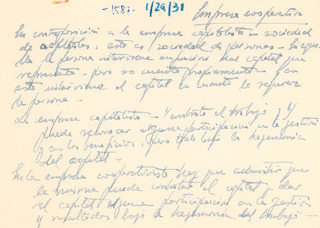 -158- 1/29/31
Empresa cooperativa
En contraposición a la empresa capitalista - sociedad
de capitales, esta es sociedad de personas - la que
la persona interviene en función del capital que
representa - pero no cuenta propiamente - En
esta interviene el capital en cuanto lo requiere
la persona -
La empresa capitalista - contrata el trabajo, y
puede reconocer alguna participación en la gestión
y en los beneficios, pero todo bajo la hegemonía
del capital -
En la empresa cooperativista hay que admitir que
la persona puede contratar el capital y dar
al capital alguna participación en la gestión
y resultados bajo la hegemonía del trabajo -